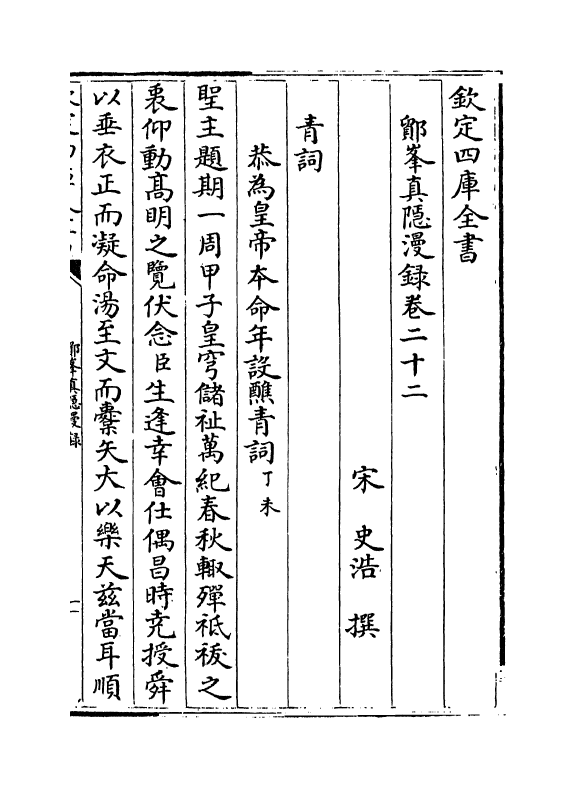 欽定四庫全書
鄮峯真隱漫録卷二十二
宋 史浩 撰
青詞
恭為皇帝本命年設醮青詞丁未
聖主題期一周甲子皇穹儲祉萬紀春秋輙殫祗祓之
衷仰動髙明之覽伏念臣生逢幸㑹仕偶昌時堯授舜
以垂衣正而凝命湯至文而櫜矢大以樂天兹當耳順
鄮峯真隱漫録
一